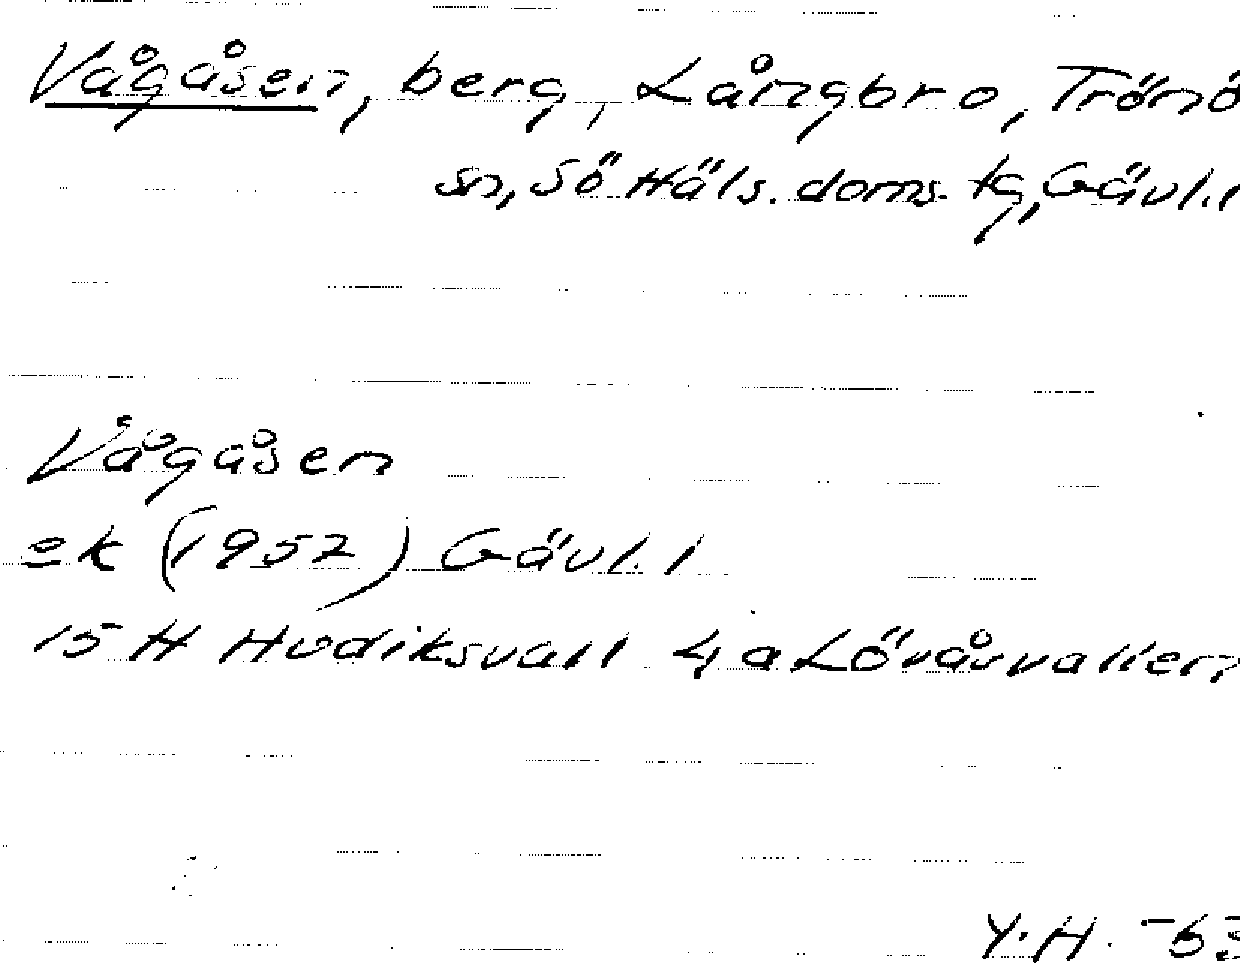 Vågåsen, berg, Långbro, Trönö
sn, Sö Häls. doms. tg, Gävl. l
Vågåsen
ek (1952) Gävl. l
15 H Hudiksvall 4 a Lövåsvallen
Y.H. -63